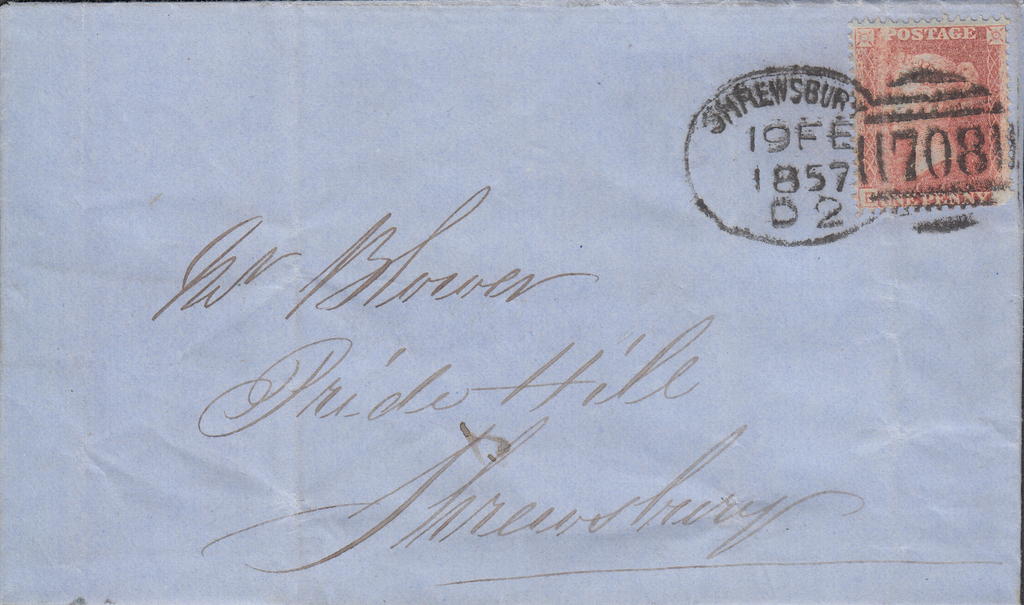 POSTAGE
SHREWSBURY
19 FE
1857
D 2
708
ONE PENNY
Mr Blower
Pride Hill
Shrewsbury